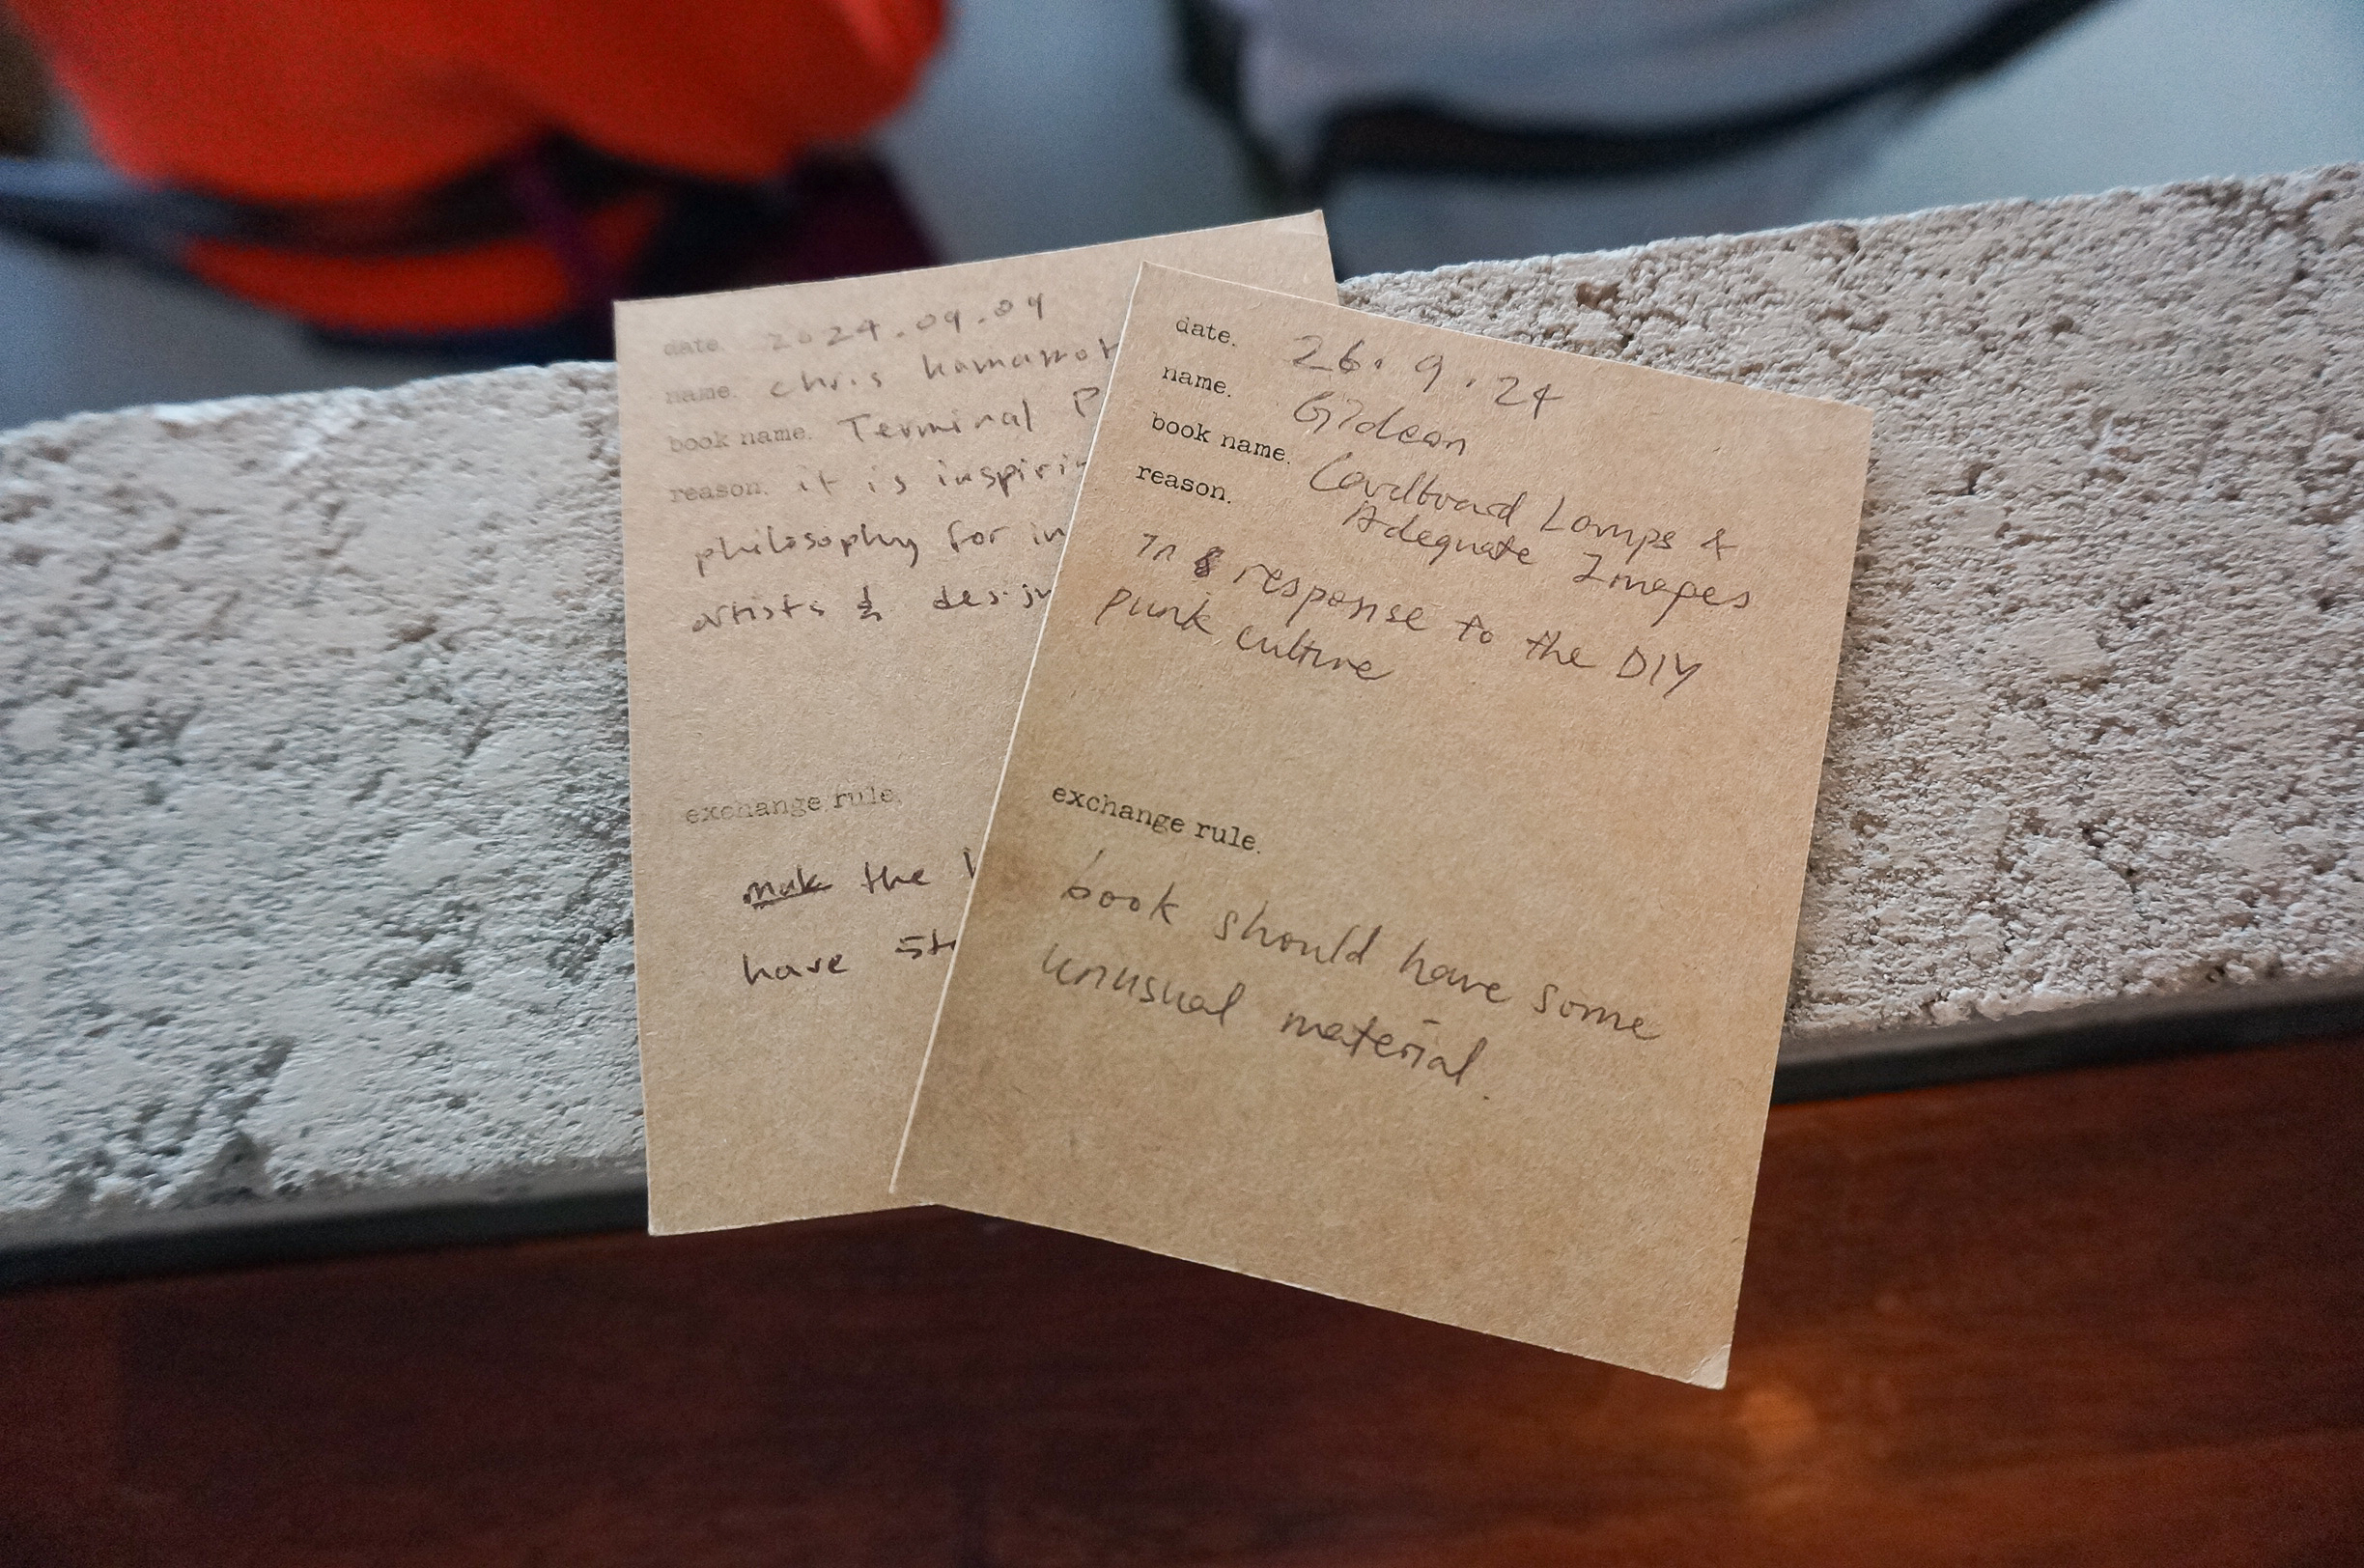 date. 2024.09.09
name. chris
book name. Terminal
reason. it is
philosophy for
artists &
exchange rule.
the
have
date. 26.9.24
name. Gideon
book name. Cardboard Lamps &
Adequate Images
reason.
In response to the DIY
punk culture
exchange rule.
book should have some
unusual material.